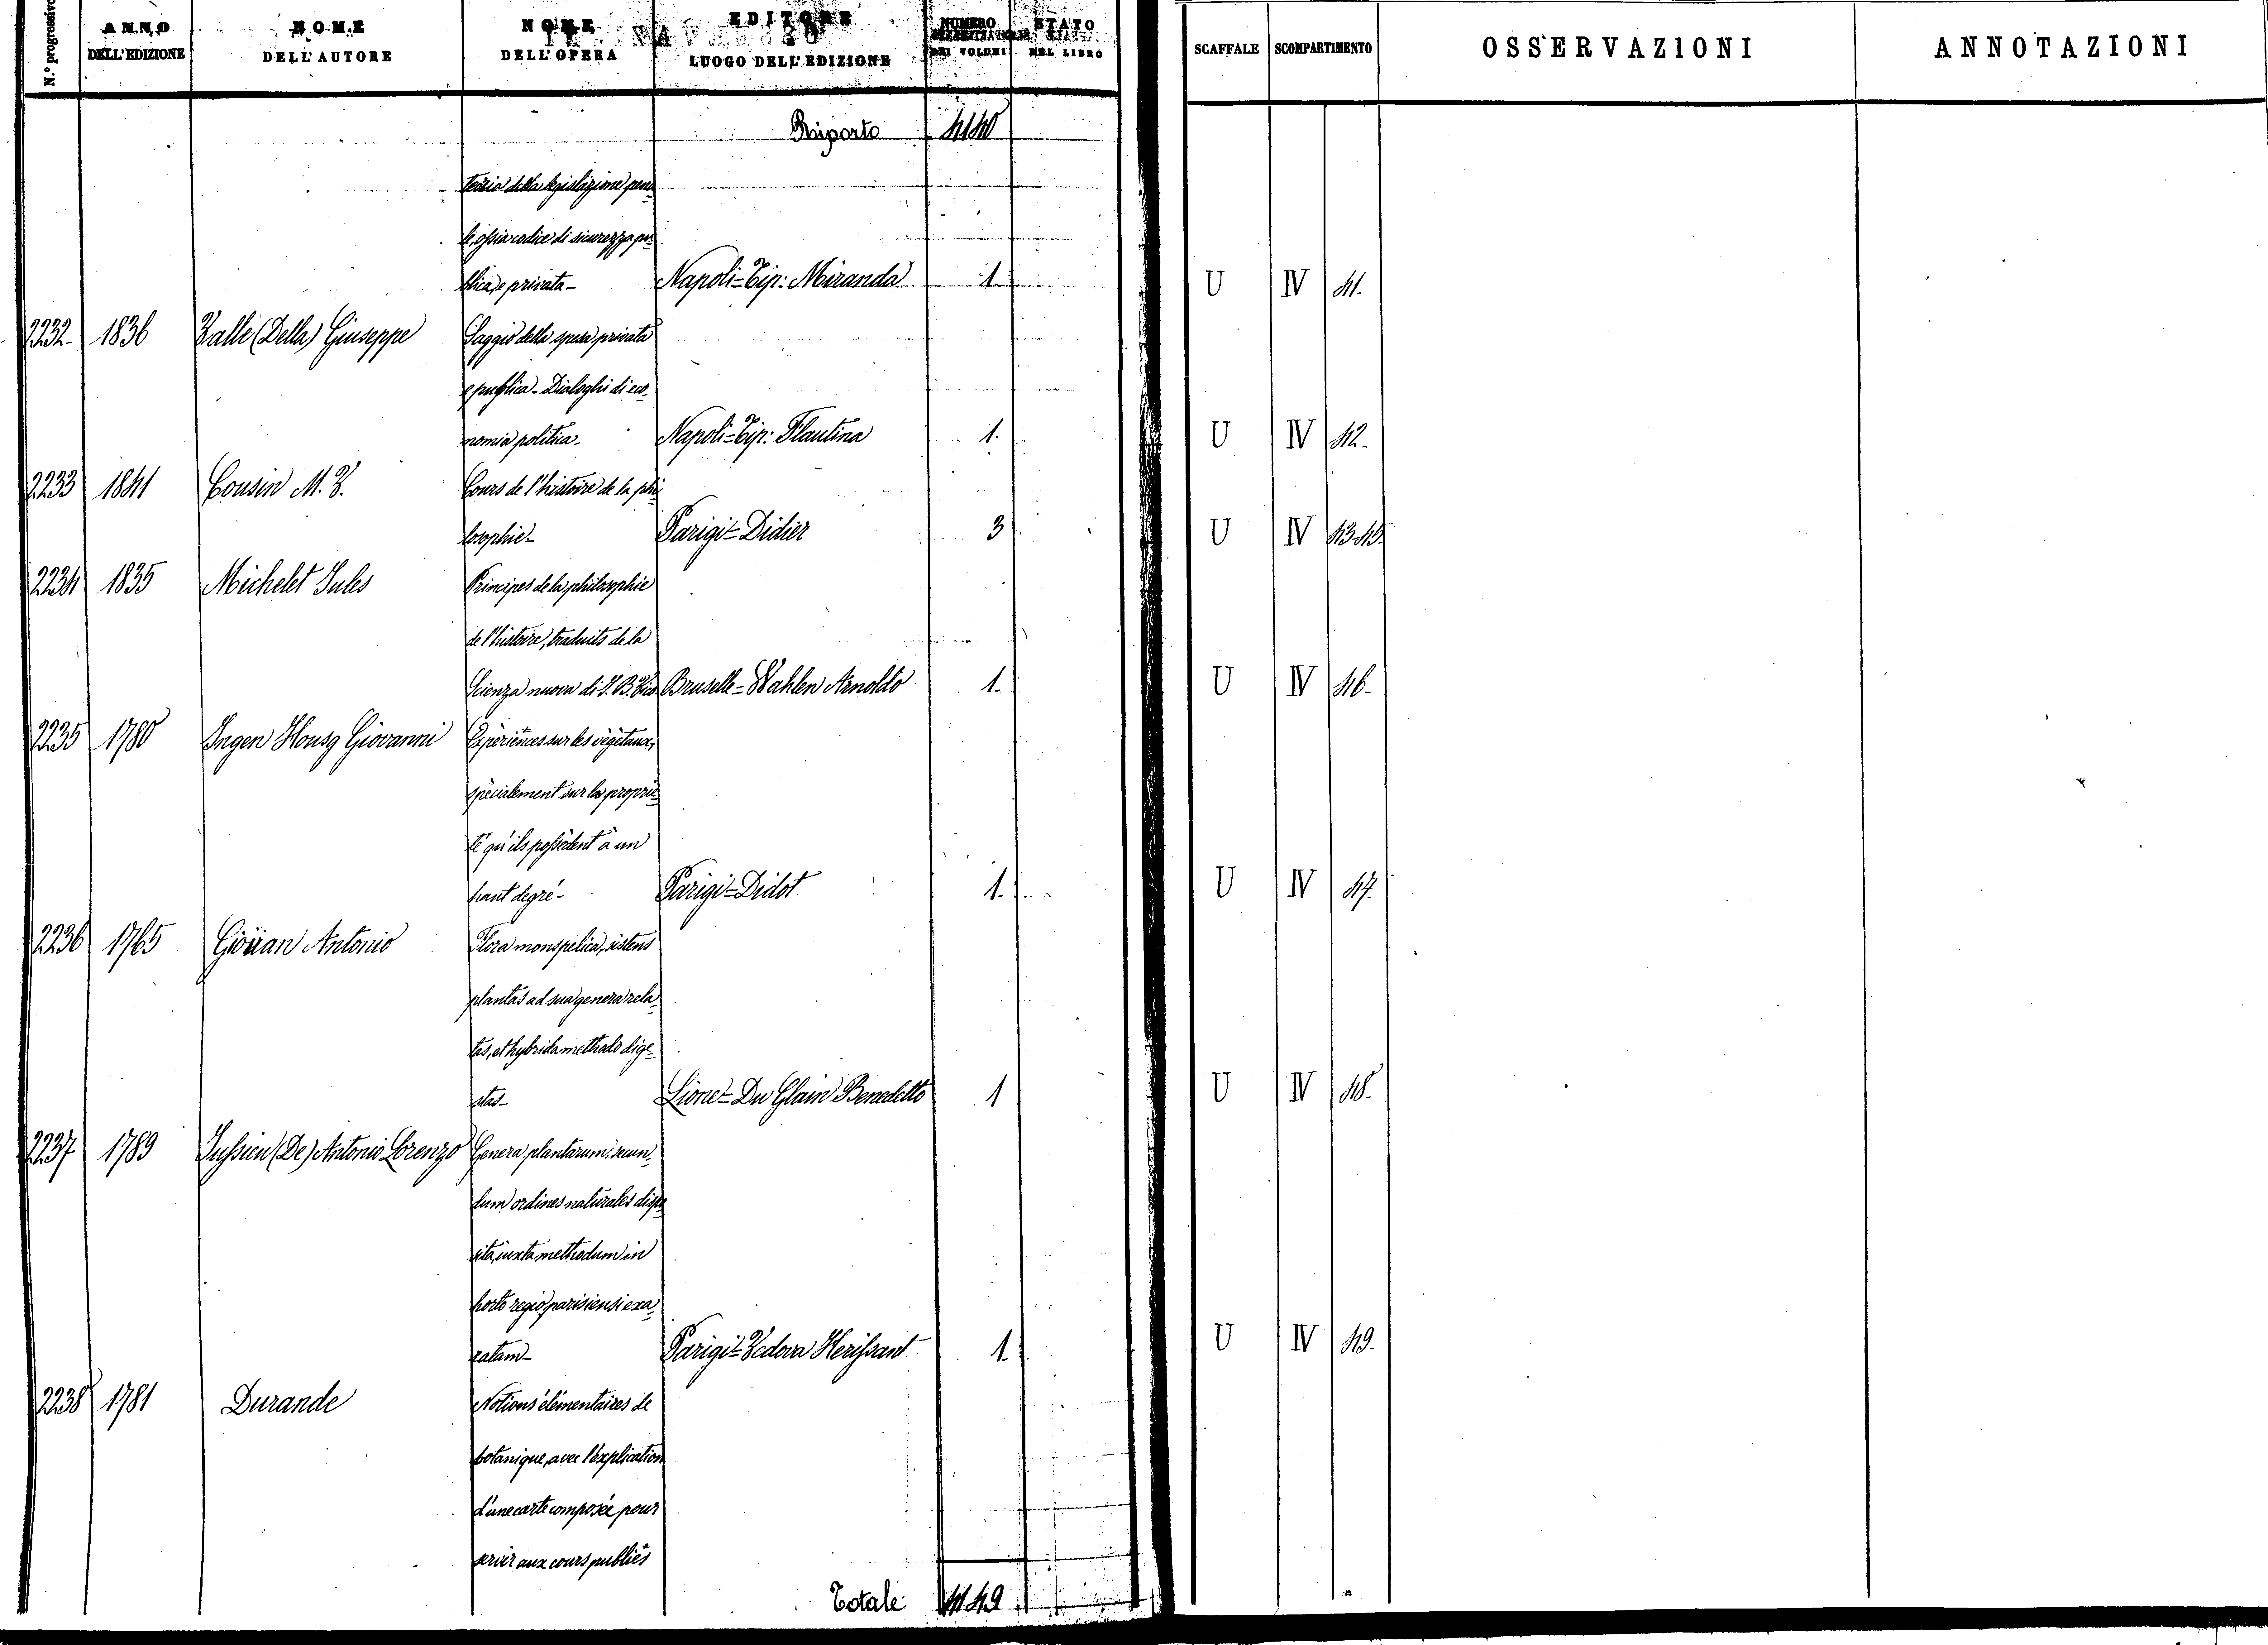 N.° progressivo ANNO DELL'EDIZIONE NOME DELL'AUTORE NOME DELL'OPERA EDITORE LUOGO DELL'EDIZIONE NUMERO DEI VOLUMI STATO DEL LIBRO SCAFFALE SCOMPARTIMENTO OSSERVAZIONI ANNOTAZIONI
Riporto 4140
teoria della legislazione pena
le, ossia codice di sicurezza pu
blica, e privata- Napoli=Tip: Miranda 1. U IV 41.
2232 1836 Valle (Della) Giuseppe Saggio della spesa privata
e publica - Dialoghi di eco-
nomia politica- Napoli=Tip: Flautina 1. U IV 42-
2233 1841 Cousin M. V. Cours de l'histoire de la phi
losophie- Parigi= Didier 3 U IV 43-45-
2234 1835 Michelet Jules Principes de la philosophie
de l'histoire, traduits de la
Scienza nuova di J. B. Vico Bruselle= Wahlen Arnoldo 1. U IV 46-
2235 1780 Ingen Housz Giovanni Expèriences sur les vègètaux,
spècialement sur la propriè-
té qu'ils possèdent à un
haut degré- Parigi=Didot 1. U IV 47.
2236 1765 Goüan Antonio Flora monspelica, sistens
plantas ad sua genera rela-
tas, et hybrida methodo dige-
stas- Lione= Du Glain Benedetto 1 U IV 48-
2237 1789 Jussieu (De) Antonio Lorenzo Genera plantarum, secun-
dum ordines naturales dispo
sita, iuxta methodum in
horto regio parisiensi exa-
ratam- Parigi= Vedova Herissant 1. U IV 49-
2238 1781 Durande Notions élémentaires de
botanique, avec l'explication
d'une carte composée pour
servir aux cours publies
Totale 4149